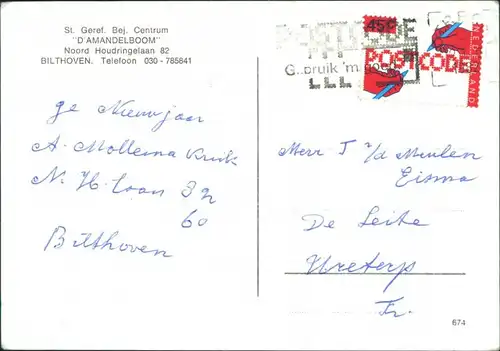 St. Geref. Bej. Centrum
"D'AMANDELBOOM"
Noord Houdringelaan 82
BILTHOVEN. Telefoon 030 - 785841
ge Nieuwjaar
A. Mollema Kruk
N. H. Laan
60
Bilthoven
POSTCODE
G..bruik 'm
45c
POSTCODE
NEDERLAND
Mevr J v/d Meulen
Eisma
De Leite
Ureterp
Fr.
674